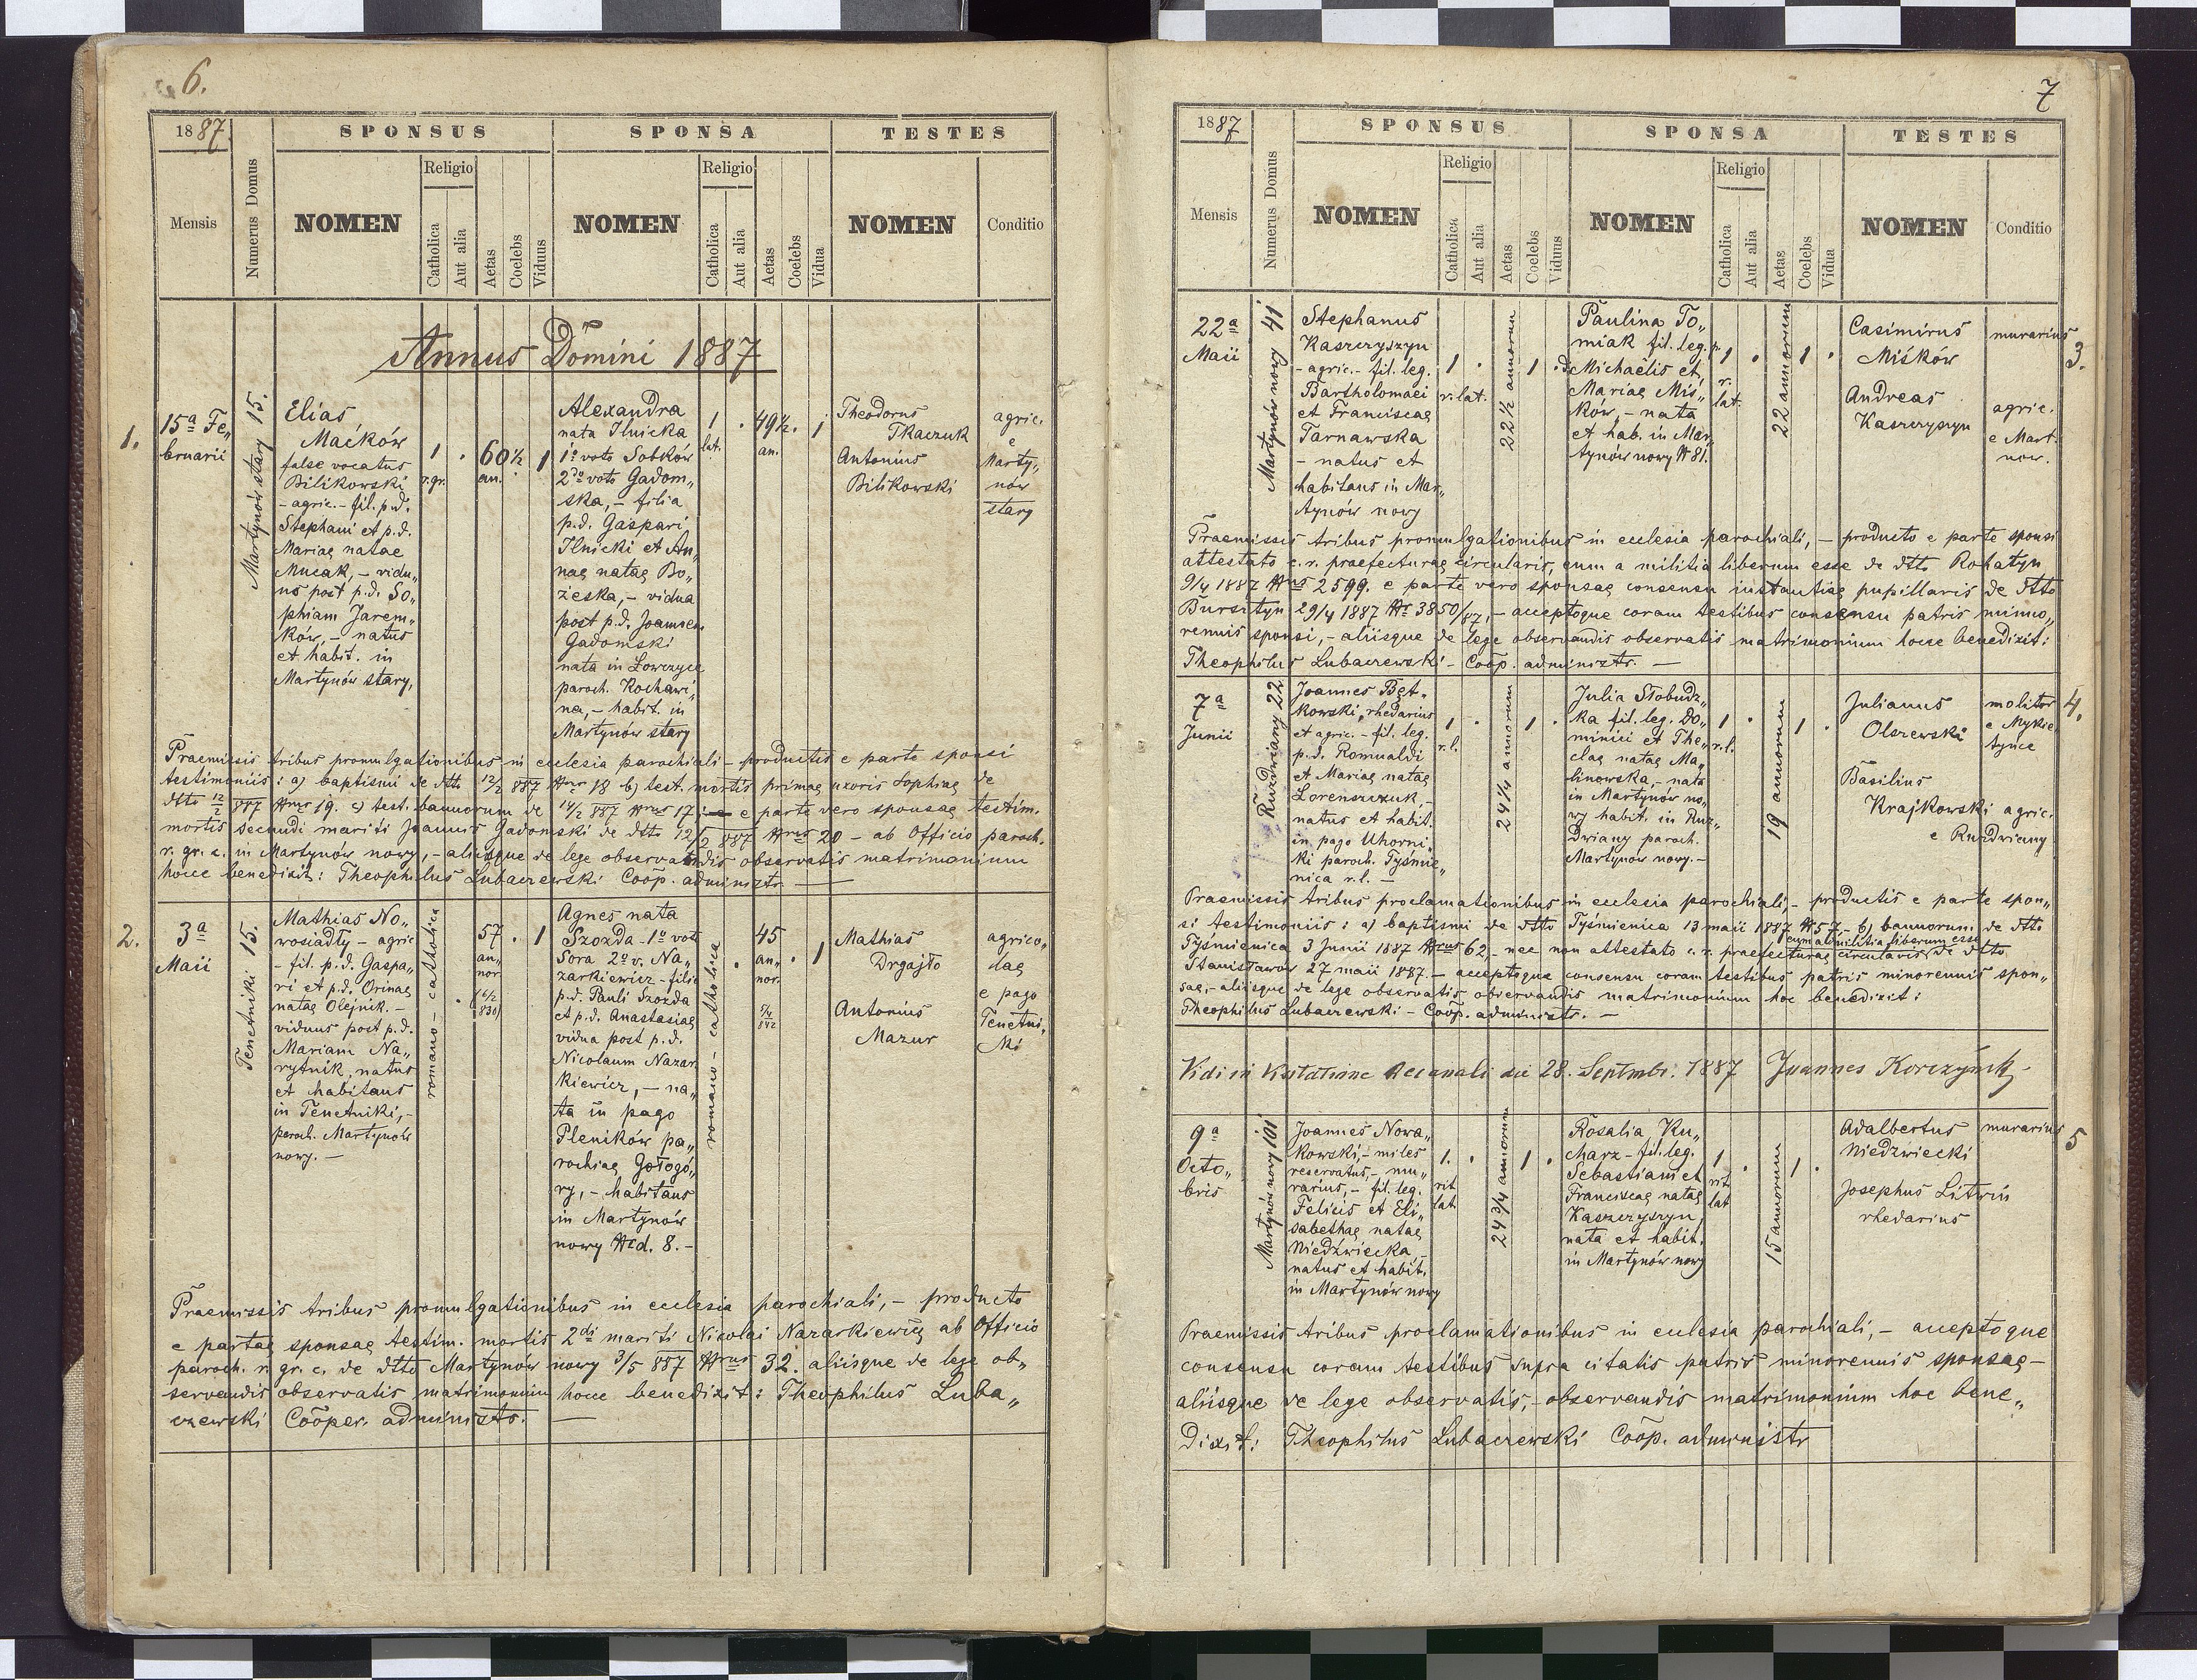 6.
1887
SPONSUS
SPONSA
TESTES
Mensis
Numerus Domus
NOMEN
Religio
Catholica
Aut alia
Aetas
Coelebs
Viduus
NOMEN
Religio
Catholica
Aut alia
Aetas
Coelebs
Vidua
NOMEN
Conditio
Annus Domini 1887
1.
15a Fe„
bruarii
Martynów stary 15.
Elias
Maćków
false vocatus
Bilikowski
- agric. - fil. p.d.
Stephani et p.d.
Mariae natae
Mucak, - vidu„
us post p.d. So„
phiam Jarem„
ków, - natus
et habit. in
Martynów stary,
1
r.gr.
.
60½
an.
.
1
Alexandra
nata Ilnicka
1o voto Sobków
2do voto Gadom„
ska, - filia
p.d. Gaspari
Ilnicki et An„
nae natae Bo„
żeska, - vidua
post p.d. Joannem
Gadomski
nata in Łowczyce
paroch. Kochawi„
na, - habit. in
Martynów stary
1
lat.
.
49½.
an.
1
Theodorus
Tkaczuk
Antonius
Bilikowski
agric.
e
Marty„
nów
stary
Praemissis tribus promulgationibus in ecclesia parochiali - productis e parte sponsi
testimoniis: a) baptismi de dtto 12/2 887 Nrus 18 b) test. mortis primae uxoris Sophiae de
dtto 12/2 887 Nrus 19. c) test. bannorum de 14/2 887 Nrus 17; e parte vero sponsae testim.
mortis secundi mariti Joannis Gadomski de dtto 12/2 887 Nrus 20 - ab Officio paroch.
r. gr. c. in Martynów nowy, - aliisque de lege observandis observatis matrimonium
hocce benedixit: Theophilus Lubaczewski Coop. administr. —
2.
3a
Maii
Tenetniki 15.
Mathias No„
wosiadły - agric
- fil. p.d. Gaspa„
ri et p.d. Orinae
natae Olejnik. -
viduus post p.d.
Mariam Na„
rytnik, natus
et habitans
in Tenetniki, -
paroch. Martynów
nowy. —
romano - catholica
.
57
an„
nor
(6/2
830)
.
1
Agnes nata
Szozda - 1o voto
Sora 2o v. Na„
zarkiewicz - filia
p.d. Pauli Szozda
et p.d. Anastasiae
vidua post p.d.
Nicolaum Nazar
kiewicz, - na„
ta in pago
Pleników pa„
rochiae Gołogó„
ry, - habitans
in Martynów
nowy Nr d. 8. -
romano - catholica
.
45
an„
nor.
5/4
842
.
1
Mathias
Drgajło
Antonius
Mazur
agrico„
lae
e pago
Tenetni„
ki
Praemissis tribus promulgationibus in ecclesia parochiali, - producto
e partae sponsae testim. mortis 2di mariti Nicolai Nazarkiewicz ab Officio
paroch. r. gr. c. de dtto Martynów nowy 3/5 887 Nrus 32. aliisque de lege ob„
servandis observatis matrimonium hocce benedixit: Theophilus Luba„
czewski Cooper. administr. —
7
1887
SPONSUS
SPONSA
TESTES
Mensis
Numerus Domus
NOMEN
Religio
Catholica
Aut alia
Aetas
Coelebs
Viduus
NOMEN
Religio
Catholica
Aut alia
Aetas
Coelebs
Vidua
NOMEN
Conditio
22a
Maii
Martynów nowy 41
Stephanus
Kaszczyszyn
- agric. - fil. leg.
Bartholomaei
et Franciscae
Tarnawska
- natus et
habitans in Mar„
tynów nowy
1
r. lat.
.
22½ annorum
1
.
Paulina To„
miak fil. leg. p.
d. Michaelis et
Mariae Miś„
ków, - nata
et hab. in Mar„
tynów nowy N 81.
1
r.
lat.
.
22 annorum
1
.
Casimirus
Miśków
Andreas
Kaszczyszyn
murarius
agric.
e Mart.
now.
3.
Praemissis tribus promulgationibus in ecclesia parochiali, - producto e parte sponsi
attestato c. r. praefecturae circularis, eum a militia liberum esse de dtto Rohatyn
9/4 1887 Nrus 2599. e parte vero sponsae consensu instantiae pupillaris de dtto
Bursztyn 29/4 1887 Nr 3850/87, - acceptoque coram testibus consensu patris mino„
rennis sponsi, - aliisque de lege observandis observatis matrimonium hocce benedixit:
Theophilus Lubaczewski - Coop. administr. —
7a
Junii
Kuzdwiany 22
Joannes Bęt„
kowski, rhedarius
et agric. - fil. leg.
p.d. Romualdi
et Mariae natae
Lorenszczuk, -
natus et habit.
in pago Uhorni„
ki paroch. Tyśmie„
nica r.l. —
1
r.l.
.
24¼ annorum
1
.
Julia Słobudz„
ka fil. leg. Do„
minici et The„
clae natae Ma„
linowska, - nata
in Martynów no„
wy habit. in Kuz„
dwiany paroch.
Martynów nowy. -
1
r.l.
.
19 annorum
1
.
Julianus
Olszewski
Basilius
Krajkowski
molitor
e Mykie„
tynce
agric.
e Kuzdwiany
4.
Praemissis tribus proclamationibus in ecclesia parochiali, - productis e parte spon„
si testimoniis: a) baptismi de dtto Tyśmienica 13 maii 1887 N 57, - b) bannorum de dtto
Tyśmienica 3 Junii 1887 Nrus 62, - nec non attestato c. r. praefecturae circularis eum a militia liberum esse de dtto
Stanisławów 27 maii 1887. - acceptoque consensu coram testibus patris minorennis spon„
sae, - aliisque de lege observatis observandis matrimonium hoc benedixit:
Theophilus Lubaczewski - Coop. administr. —
Vidi in Visitatione Decanali die 28. Septmbr. 1887 Joannes Korczyński
9a
Octo„
bris
Martynów nowy 101
Joannes Nowa„
kowski, - miles
reservatus, - mu„
rarius, - fil. leg.
Felicis et Eli„
sabethae natae
Niedźwiecka, -
natus et habit.
in Martynów nowy
1.
rit
lat.
.
24 3/4 annorum
1
.
Rosalia Ku„
charz - fil. leg.
Sebastiani et
Franciscae natae
Kaszczyszyn,
nata et habit.
in Martynów nowy
1
rit
lat
.
15 annorum
1
.
Adalbertus
Niedzwiecki
Josephus Litwin
rhedarius
murarius
5
Praemissis tribus proclamationibus in ecclesia parochiali, - acceptoque
consensu coram testibus supra citatis patris minorennis sponsae -
aliisque de lege observatis, - observandis matrimonium hoc bene„
dixit: Theophilus Lubaczewski Coop. administr